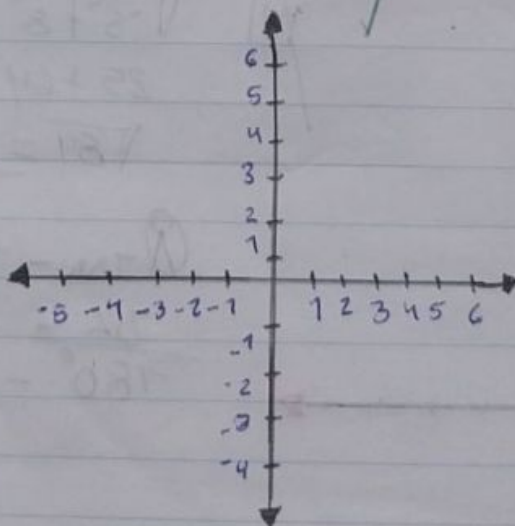 6
5
4
3
2
1
-5 -4 -3 -2 -1 1 2 3 4 5 6
-1
-2
-3
-4